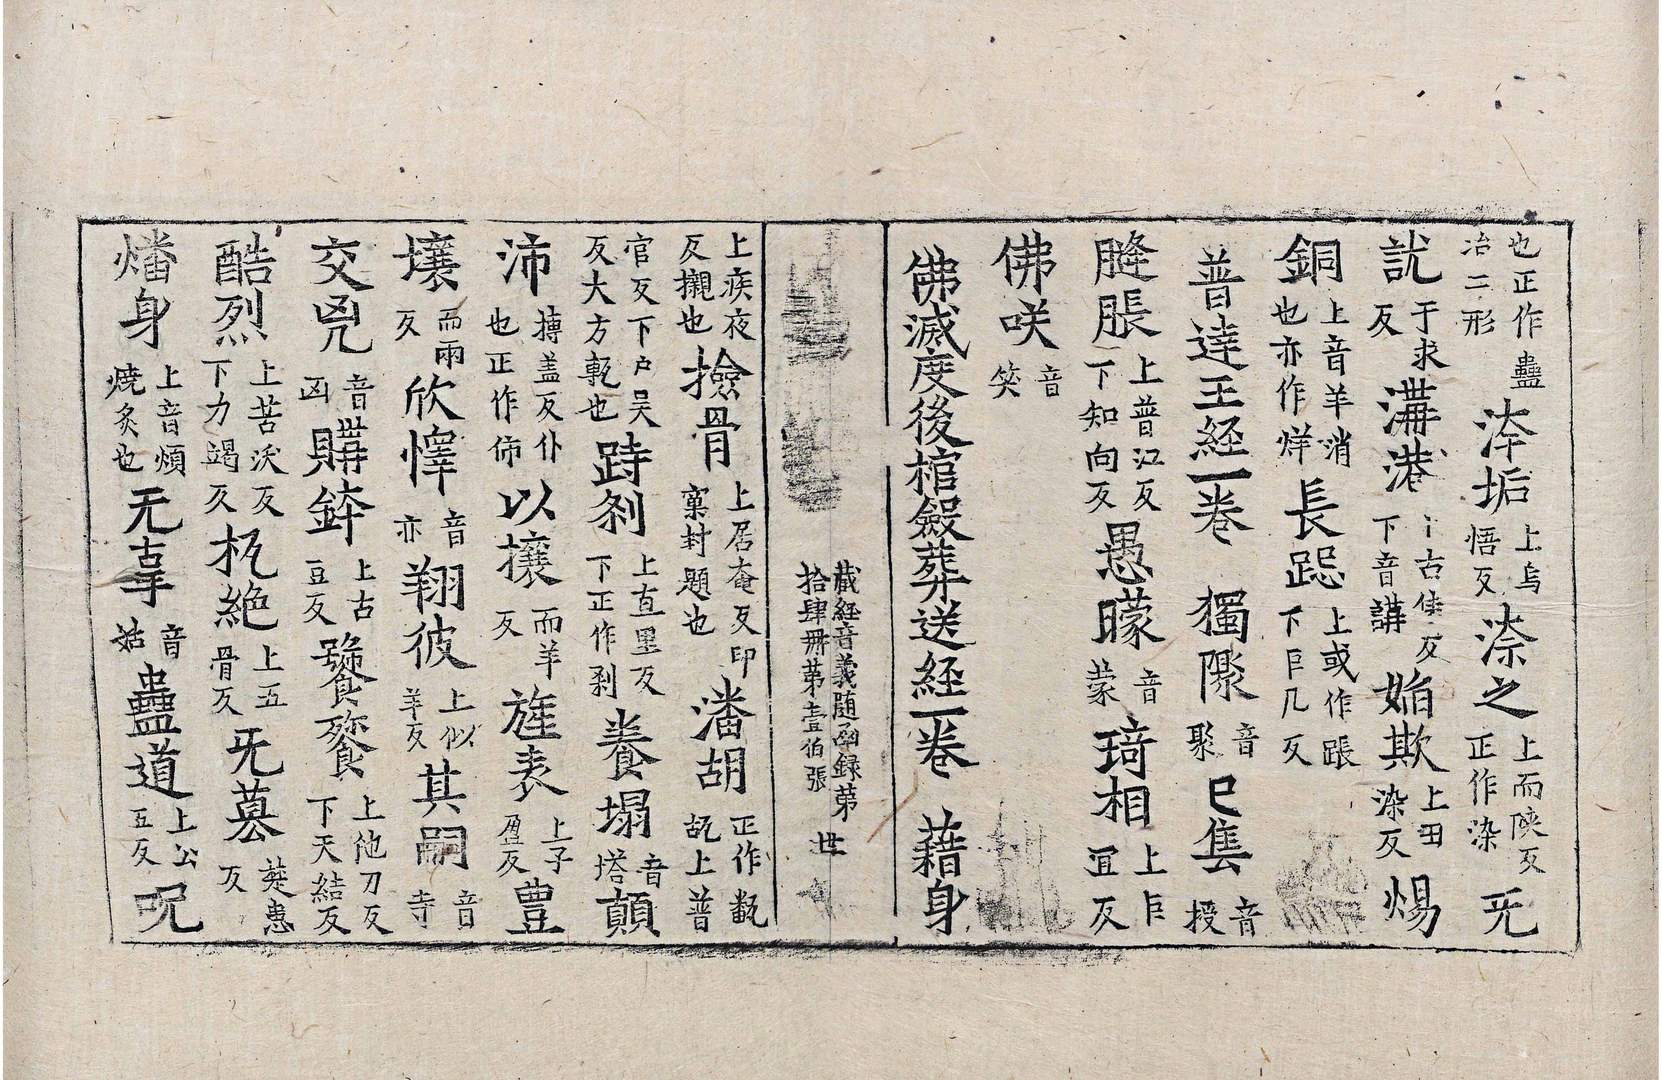 也正作蠱冶二形 洿垢 上烏悟反 㴃之 上而陝反正作染 旡
訧 于求反 溝港 上古侯反下音講 姤欺 上田染反 煬
銅 上音羊消也亦作烊 長跽 上或作䠆下巨几反
普達王經一卷 獨㵵 音聚 已隻 音授
膖脹 上普江反下知向反 愚曚 音蒙 琦相 上巨冝反
佛咲 音笑
佛滅度後棺斂葬送經一卷 藉身
藏經音義随函録第
拾肆冊第壹伯張 世
上疾夜反襯也 撿骨 上居奄反印窠封題也 潘胡 正作㽃㼋上普
官反下户吴反大方甎也 跱刹 上直里反下正作刹 養塌 音塔 顛
沛 博盖反仆也正作㤄 以攘 而羊反 旌表 上子盈反 豊
壤 而兩反 欣懌 音亦 翔彼 上似羊反 其嗣 音寺
交兇 音凶 購鉢 上古豆反 饕餮 上他刀反下天結反
酷烈 上苦沃反下力竭反 扤絶 上五骨反 旡蟇 葵惠反
燔身 上音煩燒炙也 无辜 音姑 蠱道 上公五反 呪